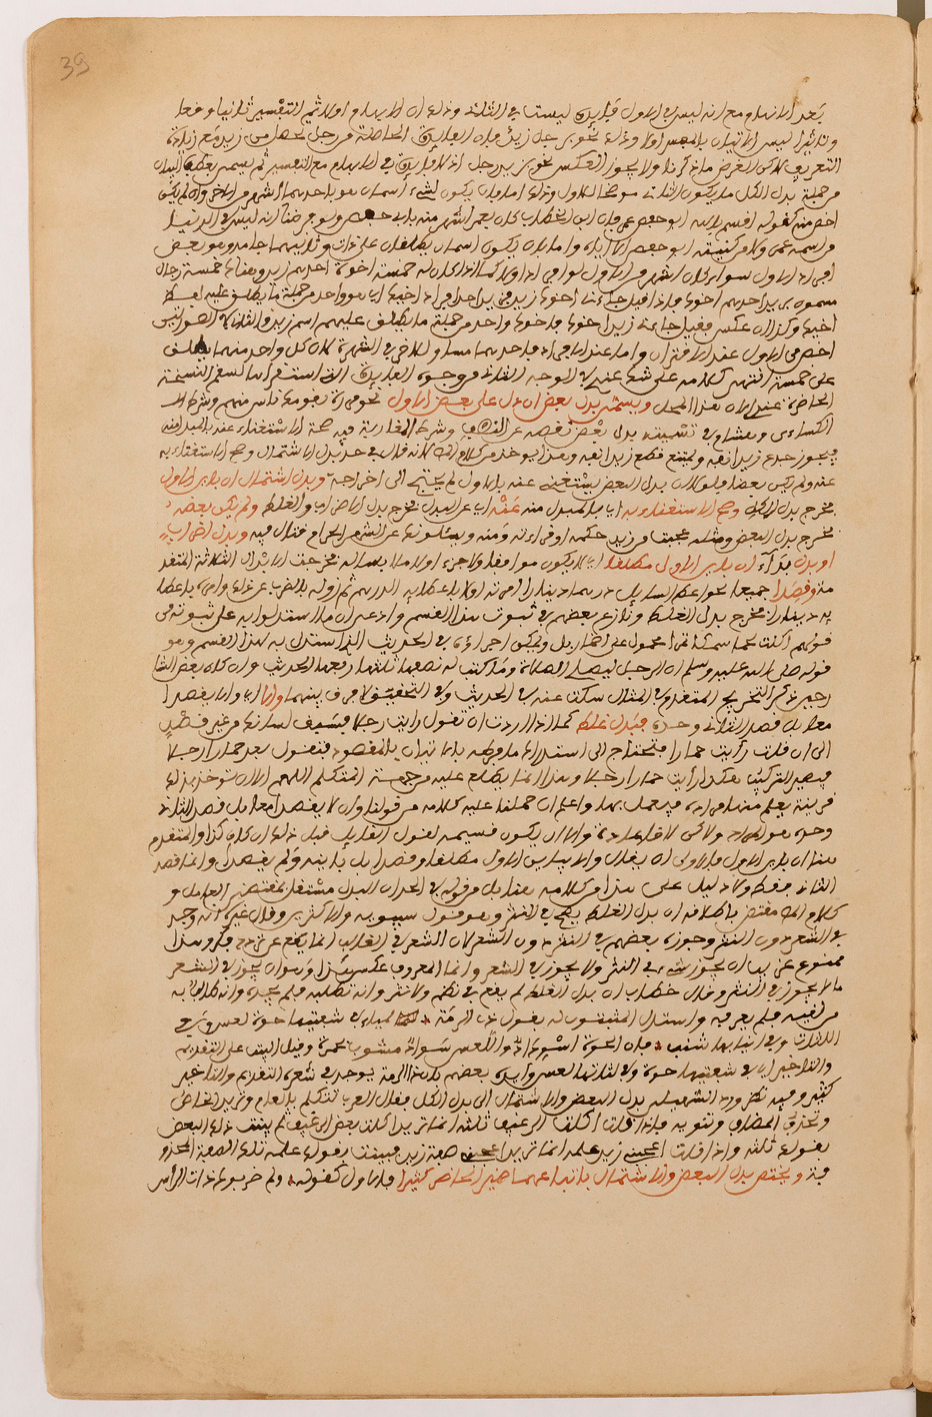 39
بعد الابهام مع انه ليس في الاول فايدة ليست في الثاني وذلك ان الابهام اولا ثم التفسير ثانيا وقعا
وتاثيرا ليس الاتيان بالمفسر اولا وذلك نحو برجل زيد فان الفايدة الحاصلة من رجل تحصل من زيد مع زيادة
التعريف لاكن الغرض ما ذكرنا ولا يجوز العكس نحو بزيد رجل اذ لا فايدة في الابهام مع التفسير
من جملة بدل الكل ما يكون الثاني موضحا للاول وذلك اما بان يكون لشيء اسمان هو باحدهما اشهر من الاخر وان لم يكن
اخص منه كقوله اقسم بالله ابو حفص عمر فان ابن الخطاب كان بعمر اشهر منه بابي حفص
من اسمه عمر ولا من كنيته ابو حفص الا اياه واما بان يكون اسمان يطلقان على ذات وثانيهما جامد وهو بعض
افراد الاول سواء كان اشهر من الاول لو افرد او لا كما اذا كان له خمسة اخوة احدهم زيد وهناك خمسة رجال
مسمون بزيد احدهم اخوك فاذا قيل جاءنا اخوك زيد فزيد احد افراد اخيك اي هو واحد من جملة ما يطلق عليه لفظ
اخيك وكذا ان عكس فقيل جاءنا زيد اخوك فاخوك واحد من جملة ما يطلق عليهم اسم زيد والثاني في الصورتين
اخص من الاول عند الاقتران واما عند الافراد فاحدهما مساو للاخر في الشهرة لان كل واحد منهما يطلق
على خمسة انتهى كلامه على شيء عنده في الوجه الثاني من وجوه الفايدة
الحاضرة عندي الان هذا المحل ويسمى بدل بعض ان دل على بعض الاول نحو مررت بقومك ناس منهم وشرط
الكساءي وهشام في تسميته بدل بعض نقصه عن النصف وشرط المغاربة فيه صحة الاستغناء عنه بالمبدل منه
فيجوز جدع زيد انفه ويمتنع قطع زيد انفه وهذا يوخذ من كلام المص لانه قال في حد بدل الاشتمال وصح الاستغناء به
عنه ولم يكن بعضا فلو كان بدل البعض يستغنى عنه بالاول لم يحتج الى اخراجه وبدل اشتمال ان باين الاول
فخرج بدل الكل وصح الاستغناء به اي بالمبدل منه عنه اي عن البدل فخرج بدل الاضراب والغلط ولم يكن بعضه
فخرج بدل البعض ومثله عجبت من زيد حكمه او قراءته ومنه ويسئلونك عن الشهر الحرام قتال فيه وبدل اضراب
او بدل بداء ان باين الاول مطلقا اي لا يكون موافقا ولا جزءا ولا ملابسا له فخرجت الابدال الثلاثة المتقد
مة وقصدا جميعا نحو اعط السايل درهما دينارا امرته اولا باعطايه الدرهم ثم زوله بالاضراب عن ذلك وامره باعطا
يه دينارا فخرج بدل الغلط ونازع بعضهم في ثبوت هذا القسم وادعى ان ما استدلوا به على ثبوته في
قولهم اكلت لحما سمكا تمرا محمول على اضمار بل ويمكن اجراؤه في الحديث الذي استدل به لهذا القسم وهو
قوله صلى الله عليه وسلم ان الرجل ليصلي الصلاة وما كتب له نصفها ثلثها ربعها الحديث وان كان بعض الشا
رحين ذكر التخريج المتقدم في المثال سكت عنه في الحديث وفي التحقيق لا فرق بينهما والا اي والا يقصدا
معا بل قصد الثاني وحده فبدل غلط كما اذا اردت ان تقول رايت رجلا فيسبق لسانك من غير قصد
الى ان قلت رأيت حمارا فتحتاج الى استدراك ما فرط بالاتيان بالمقصود فتقول بعد حمار ارجلا
فيصير التركيب هكذا رأيت حمارا رجلا وهذا انما يطلع عليه من جهة المتكلم اللهم الا ان توخذ بذلك
قرينة يعلم منها مراده فيعمل بها واعلم ان حملنا عليه كلامه من قولنا وان لا يقصدا معا بل قصد الثاني
وحده هو المراد ولاكن لا قايل به والا ان يكون قسيمه لقول القايل قبل ذلك ان كان كذا والمتقدم
هنا ان باين الاول فالاولى ان يقال والا يباين الاول مطلقا وقصدا بل باينه ولم يقصدا وانما قصد
الثاني فقط ولا دليل على هذا من كلامه هذا بل من قوله في الحد ان البدل مستقل بمقتضى العامل و
كلام المص مقتض باطلاقه ان بدل الغلط يقع في النثر وهو قول سيبويه والاكثرين وقال غيره انه وجد
في الشعر دون النثر وجوزه بعضهم في النثر دون الشعر لان الشعر في الغالب انما يقع عن ترو فكر وهذا
ممنوع عن بيان ان يجوز شيء في النثر ولا يجوز في الشعر وانما المعروف عكس هذا وهو ان يجوز في الشعر
ما لا يجوز في النثر وقال خطاب ان بدل الغلط لم يقع في نظم ولا نثر وانه تطلبه فلم يجده وانه طالب به
من لقيه فلم يعرفه واستدل المثبتون له بقول ذي الرمة لمياء في شفتيها حوة لعس وفي
اللثات وفي انيابها شنب فان الحوة السواد واللعس سواد مشوب بحمرة وقيل البيت على التقديم
والتاخير اي في شفتيها حوة وفي لثاتها لعس وايده بعضهم بان ذا الرمة يوجد في شعره التقديم والتاخير
كثير وفيه نظر ورد السهيلي بدل البعض والاشتمال الى بدل الكل فقال العرب تتكلم بالعام وتريد الخاص
وتحذف المضاف وتنويه فاذا قلت اكلت الرغيف ثلثه انما تريد اكلت بعض الرغيف ثم بينت ذلك البعض
بقولك ثلثه واذا قلت اعجبني زيد علمه انما تريد اعجبني صفة زيد فبينت بقولك علمه تلك الصفة المحذو
فة ويختص بدل البعض والاشتمال باتباعهما ضمير الحاضر كثيرا فالاول كقوله وهم ضربوك ذات الراس